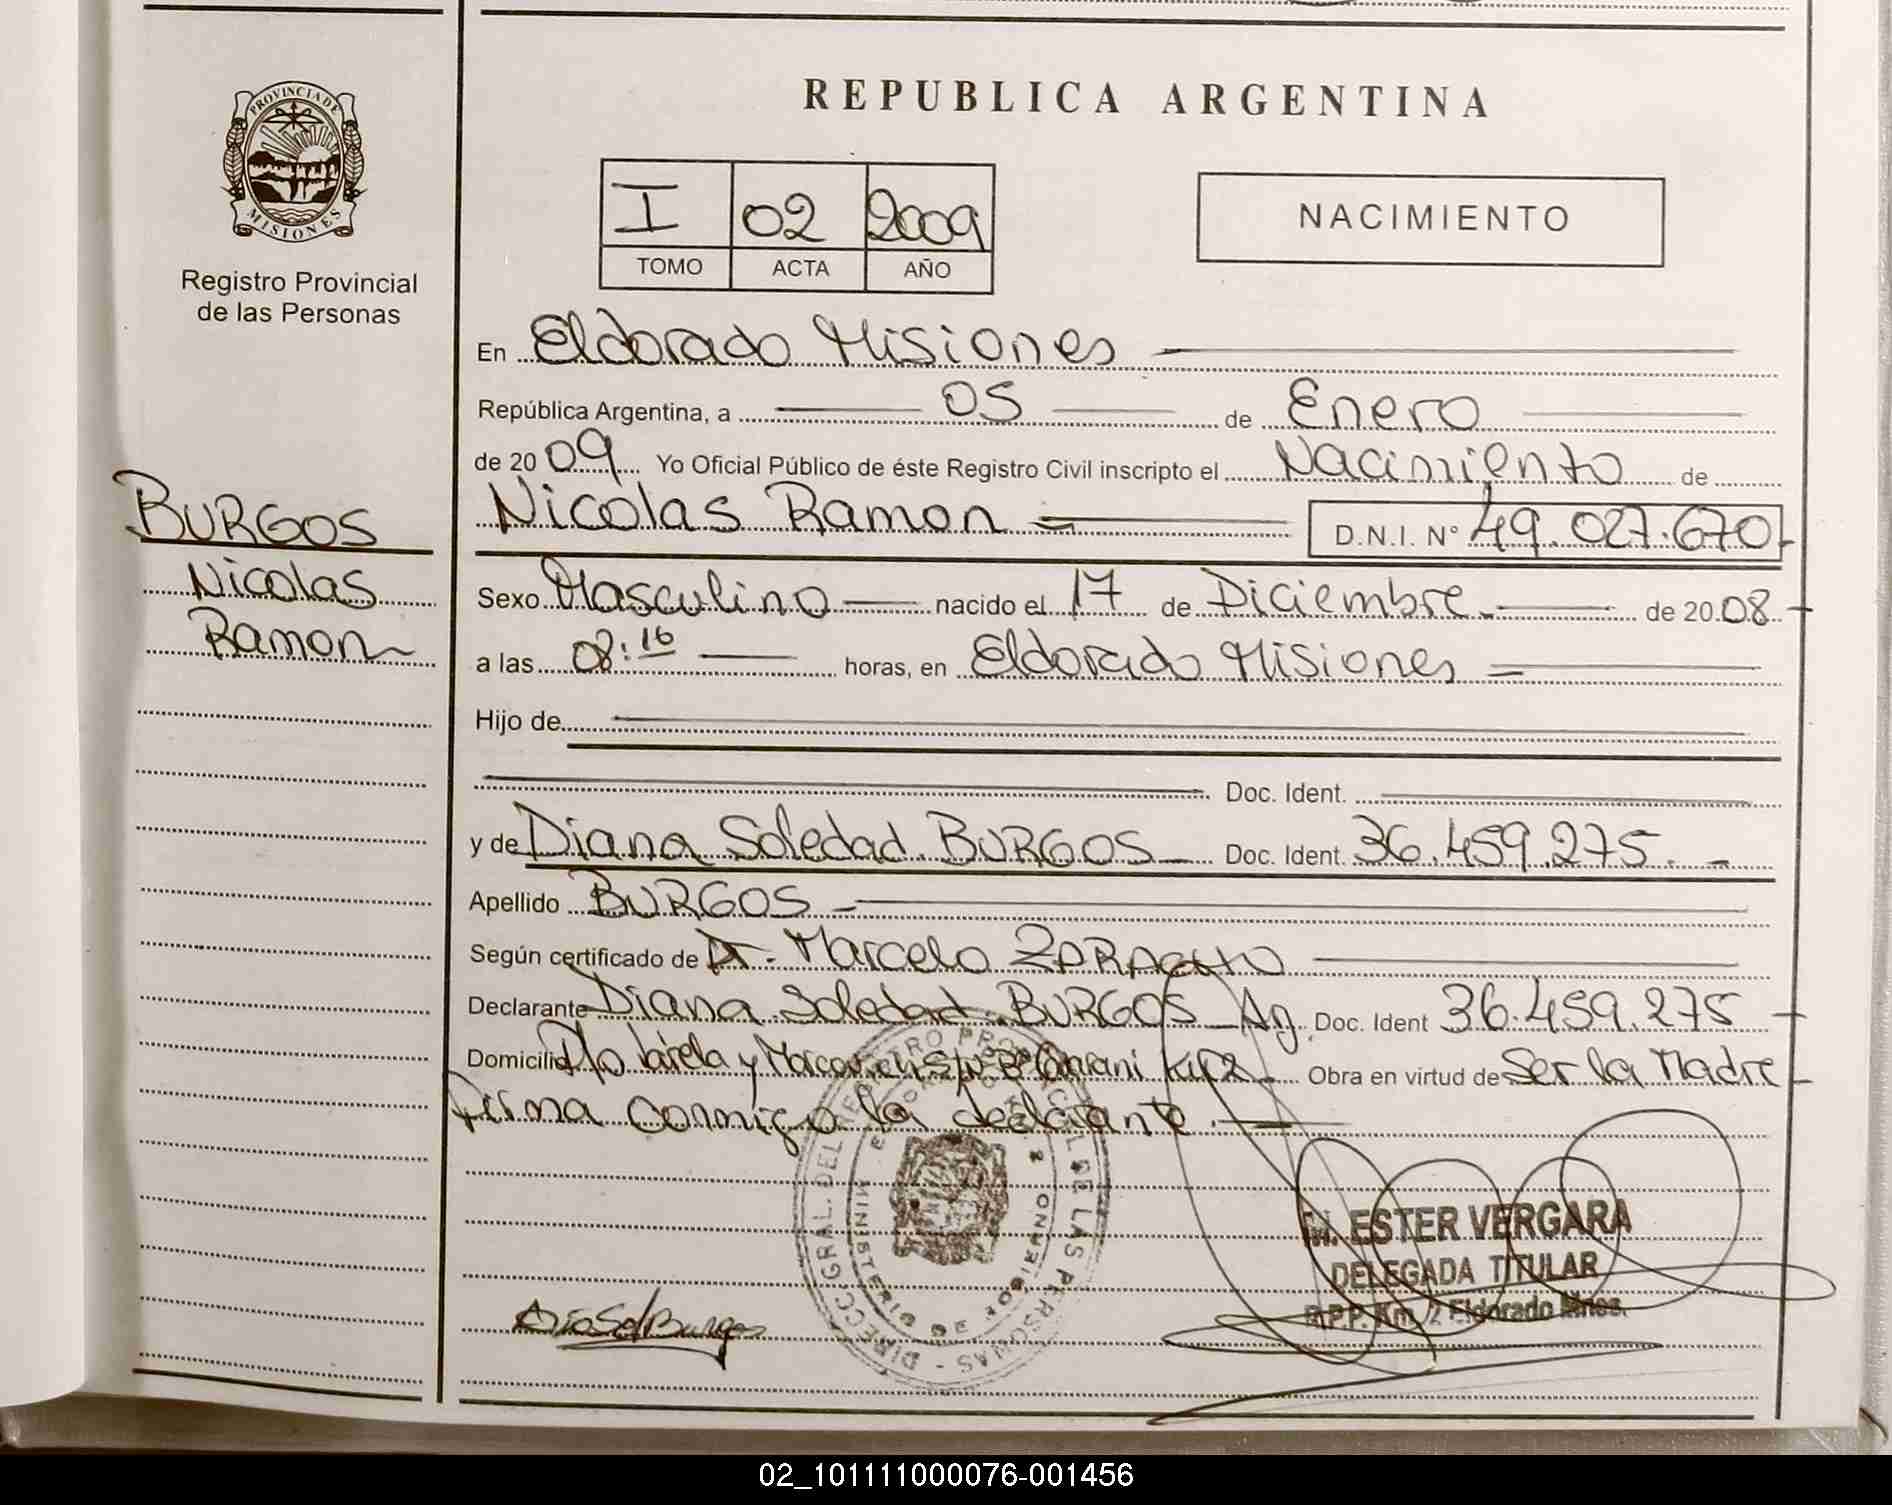 PROVINCIA DE
MISIONES
Registro Provincial
de las Personas
BURGOS
Nicolas
Ramon
REPUBLICA ARGENTINA
I 02 2009
TOMO ACTA AÑO
NACIMIENTO
En Eldorado Misiones
República Argentina, a 05 de Enero
de 2009 Yo Oficial Público de éste Registro Civil inscripto el Nacimiento de
Nicolas Ramon D.N.I. N° 49.027.670
Sexo Masculino nacido el 17 de Diciembre de 2008
a las 08:16 horas, en Eldorado Misiones
Hijo de
Doc. Ident.
y de Diana Soledad BURGOS Doc. Ident. 36.459.275.
Apellido BURGOS
Según certificado de Dr. Marcelo ZARACHO
Declarante Diana Soledad BURGOS Ag. Doc. Ident 36.459.275
Domicilio y S/N Bº Guarani Km 2 Obra en virtud de Ser la Madre
Firma conmigo la declarante.
DIRECC. GRAL. DEL REGISTRO PROVINCIAL DE LAS PERSONAS
MINISTERIO DE GOBIERNO
ESTER VERGARA
DELEGADA TITULAR
R.P.P. Km. 2 Eldorado Mnes.
Burgos
02_101111000076-001456